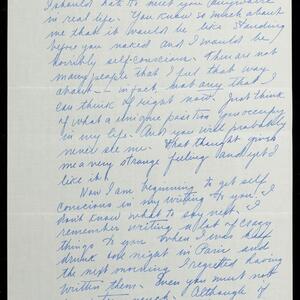 I should hate to meet you anywhere
in real life. You know so much about
me that it would be like standing
before you naked and I would be
horribly self conscious. There are not
many people that I feel that way
about — in fact, not any that I
can think of right now. Just think
of what a unique position you occupy
in my life. And you will probably
never see me. That thought gives
me a very strange feeling and yet I
like it.
Now I am beginning to get self
conscious in my writing to you! I
don't know what to say next. I
remember writing a lot of crazy
things to you when I was half
drunk one night in Paris and
the next morning I regretted having
written them. Even you must not
Although if